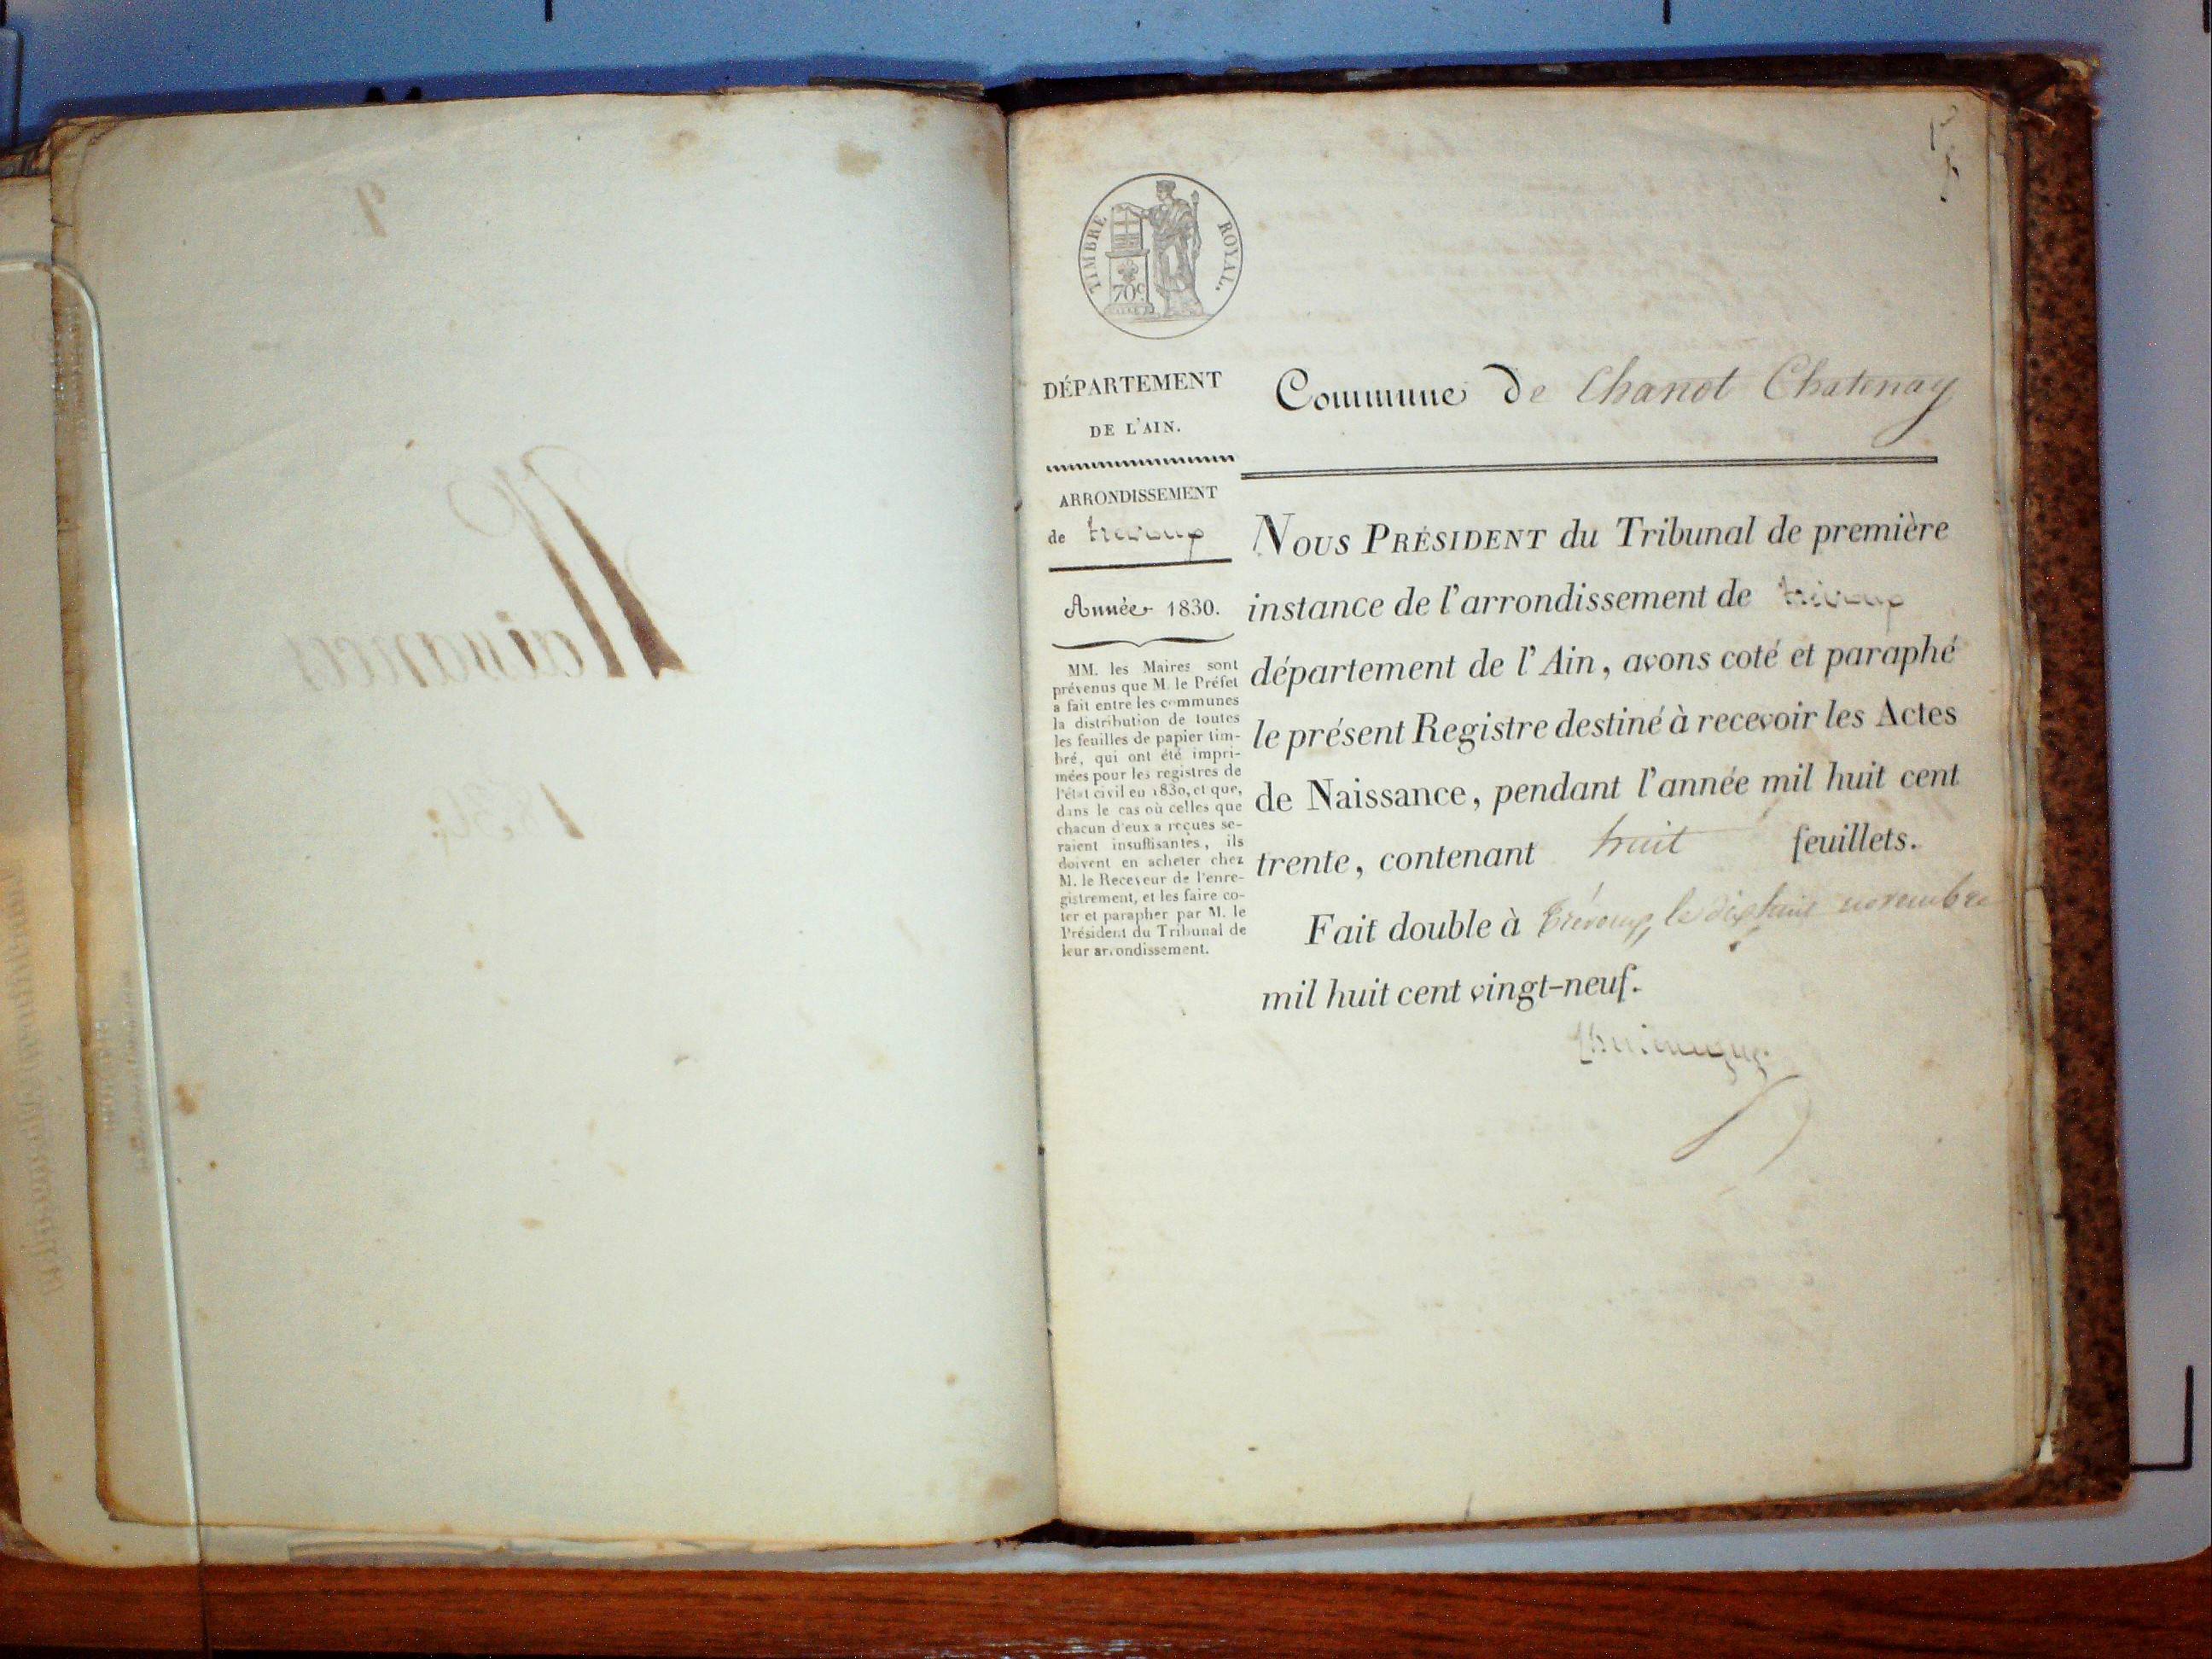 Naissances
TIMBRE ROYAL.
70c
DÉPARTEMENT
DE L'AIN.
ARRONDISSEMENT
de trevoux
Année 1830.
MM. les Maires sont
prévenus que M. le Préfet
a fait entre les communes
la distribution de toutes
les feuilles de papier tim-
bré, qui ont été impri-
mées pour les registres de
l'état civil en 1830, et que,
dans le cas où celles que
chacun d'eux a reçues se-
raient insuffisantes, ils
doivent en acheter chez
M. le Receveur de l'enre-
gistrement, et les faire co-
ter et parapher par M. le
Président du Tribunal de
leur arrondissement.
Commune de Chanot Chatenay
NOUS PRÉSIDENT du Tribunal de première
instance de l'arrondissement de trévoux
département de l'Ain, avons coté et paraphé
le présent Registre destiné à recevoir les Actes
de Naissance, pendant l'année mil huit cent
trente, contenant huit feuillets.
Fait double à trévoux, le dix huit novembre
mil huit cent vingt-neuf.